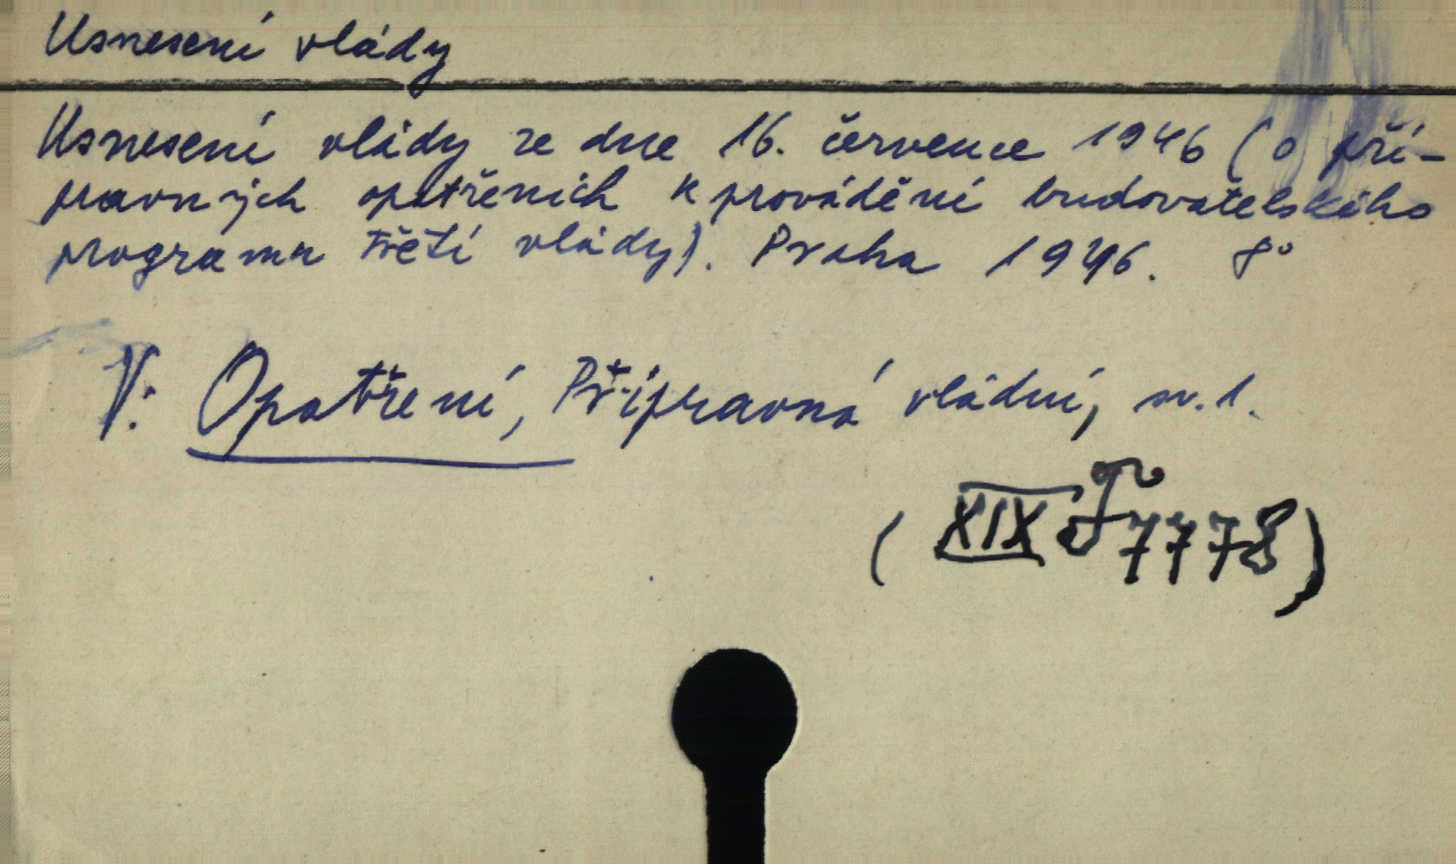 Usnesení vlády
Usnesení vlády ze dne 16. července 1946 (o pří-
pravných opatřeních k provádění budovatelského
programu třetí vlády). Praha 1946. 8°
V: Opatření, Přípravná vládní, sv. 1.
(XIX 7778)